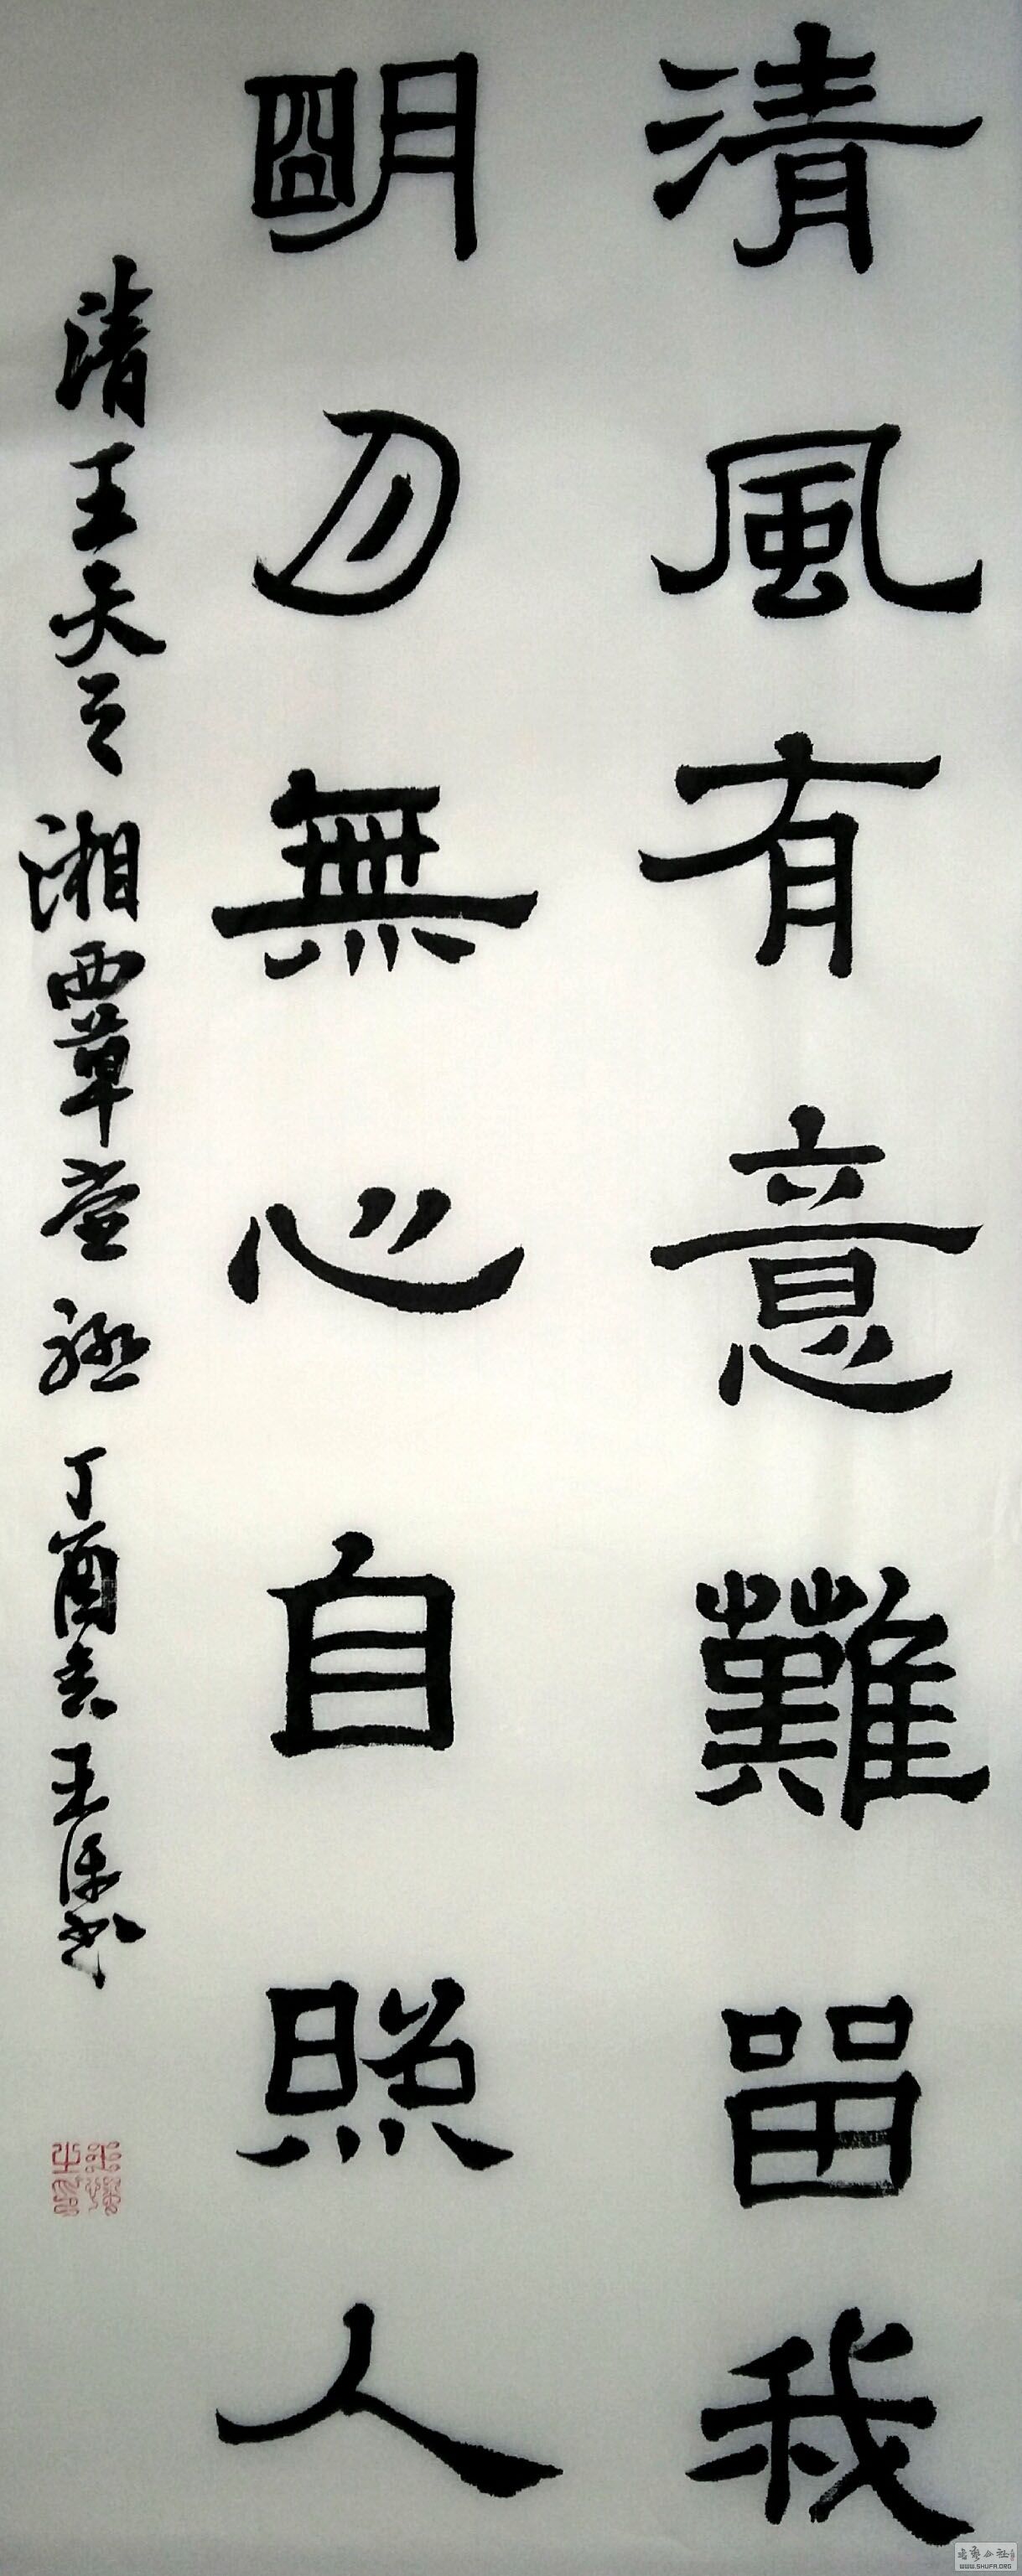 清風有意難留我
明月無心自照人
清王夫之湘西草堂聯 丁酉 王 書
書藝公社
WWW.SHUFA.ORG